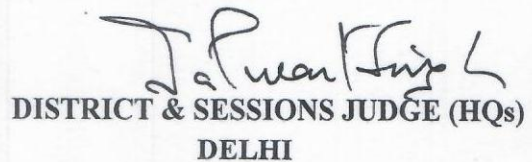 DISTRICT & SESSIONS JUDGE (HQs)
DELHI